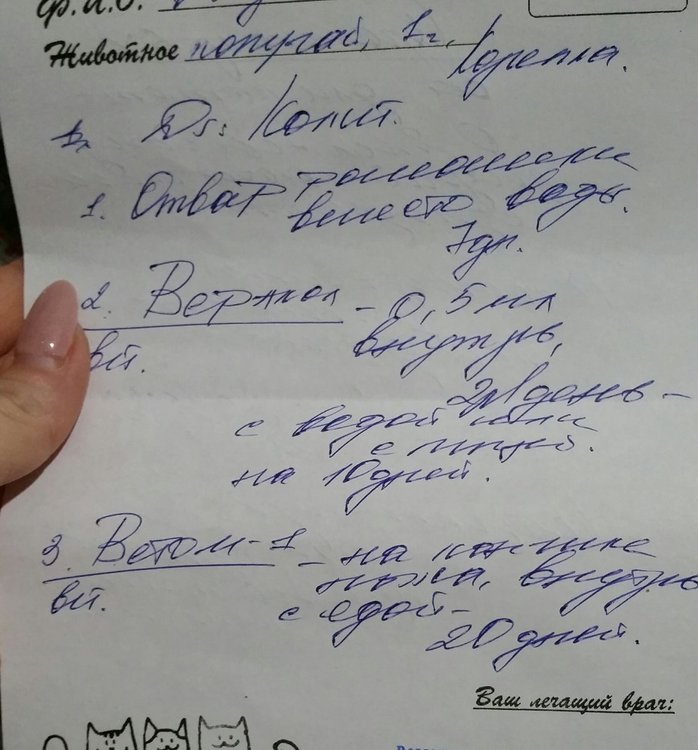 Ф.И.О.
Животное попугай, 1 г.,
Корелла.
Ds: Колит.
1. Отвар ромашки
вместо воды.
7 дн.
2. Вермол - 0,5 мл
вет. внутрь,
2 р/день -
с водой или
с пищей.
на 10 дней.
3. Ветом-1 - на кончике
вет. ножа, внутрь
с едой -
20 дней.
Ваш лечащий врач: